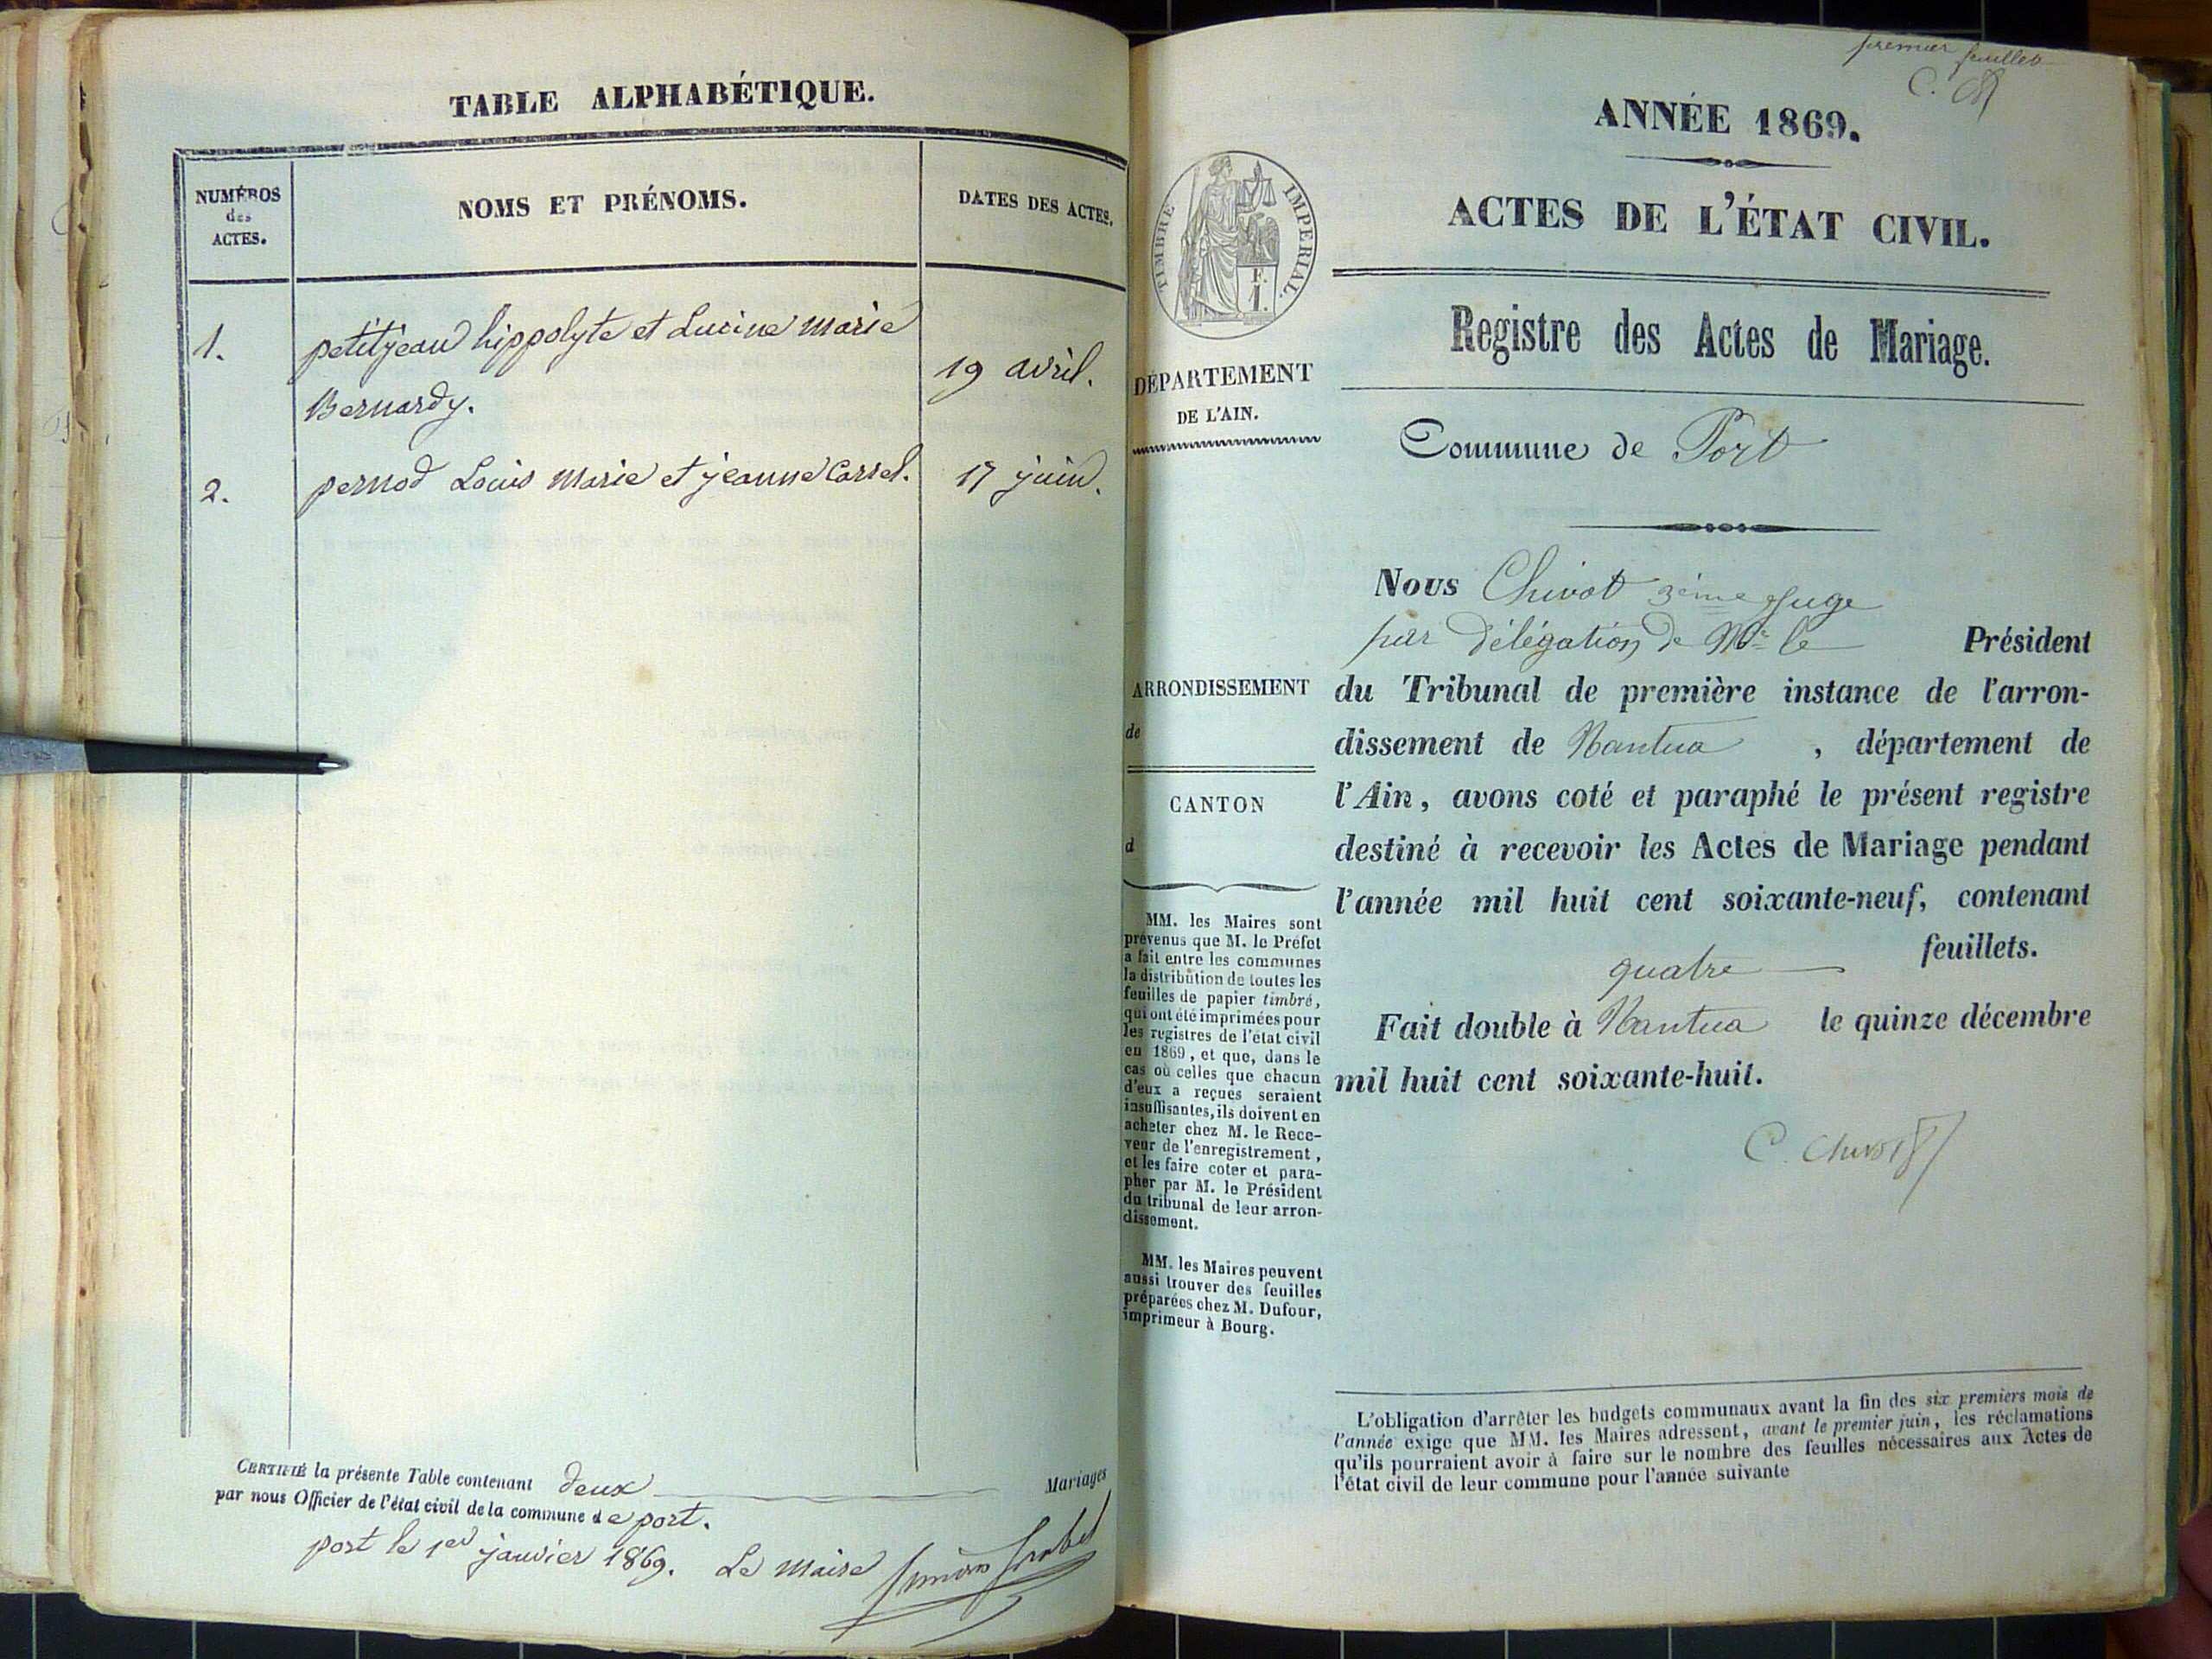 TABLE ALPHABÉTIQUE.
NUMÉROS
des
ACTES.
NOMS ET PRÉNOMS.
DATES DES ACTES.
1.
petitjean hippolyte et Lucine marie
Bernardy.
19 avril.
2.
pernod Louis marie et jeanne Carrel.
17 juin.
CERTIFIÉ la présente Table contenant deux Mariages
par nous Officier de l'état civil de la commune de port.
port le 1er janvier 1869. Le maire
premier feuillet
C.
ANNÉE 1869.
ACTES DE L'ÉTAT CIVIL.
TIMBRE IMPERIAL.
Registre des Actes de Mariage.
DÉPARTEMENT
DE L'AIN.
Commune de Port
Nous Chivot 3ème Juge
par délégation de Mr le Président
du Tribunal de première instance de l'arron-
dissement de Nantua, département de
l'Ain, avons coté et paraphé le présent registre
destiné à recevoir les Actes de Mariage pendant
l'année mil huit cent soixante-neuf, contenant
quatre feuillets.
Fait double à Nantua le quinze décembre
mil huit cent soixante-huit.
C. Chivot
ARRONDISSEMENT
de
CANTON
d
MM. les Maires sont
prévenus que M. le Préfet
a fait entre les communes
la distribution de toutes les
feuilles de papier timbré,
qui ont été imprimées pour
les registres de l'état civil
en 1869, et que, dans le
cas où celles que chacun
d'eux a reçues seraient
insuffisantes, ils doivent en
acheter chez M. le Rece-
veur de l'enregistrement,
et les faire coter et para-
pher par M. le Président
du tribunal de leur arron-
dissement.
MM. les Maires peuvent
aussi trouver des feuilles
préparées chez M. Dufour,
imprimeur à Bourg.
L'obligation d'arrêter les budgets communaux avant la fin des six premiers mois de
l'année exige que MM. les Maires adressent, avant le premier juin, les réclamations
qu'ils pourraient avoir à faire sur le nombre des feuilles nécessaires aux Actes de
l'état civil de leur commune pour l'année suivante